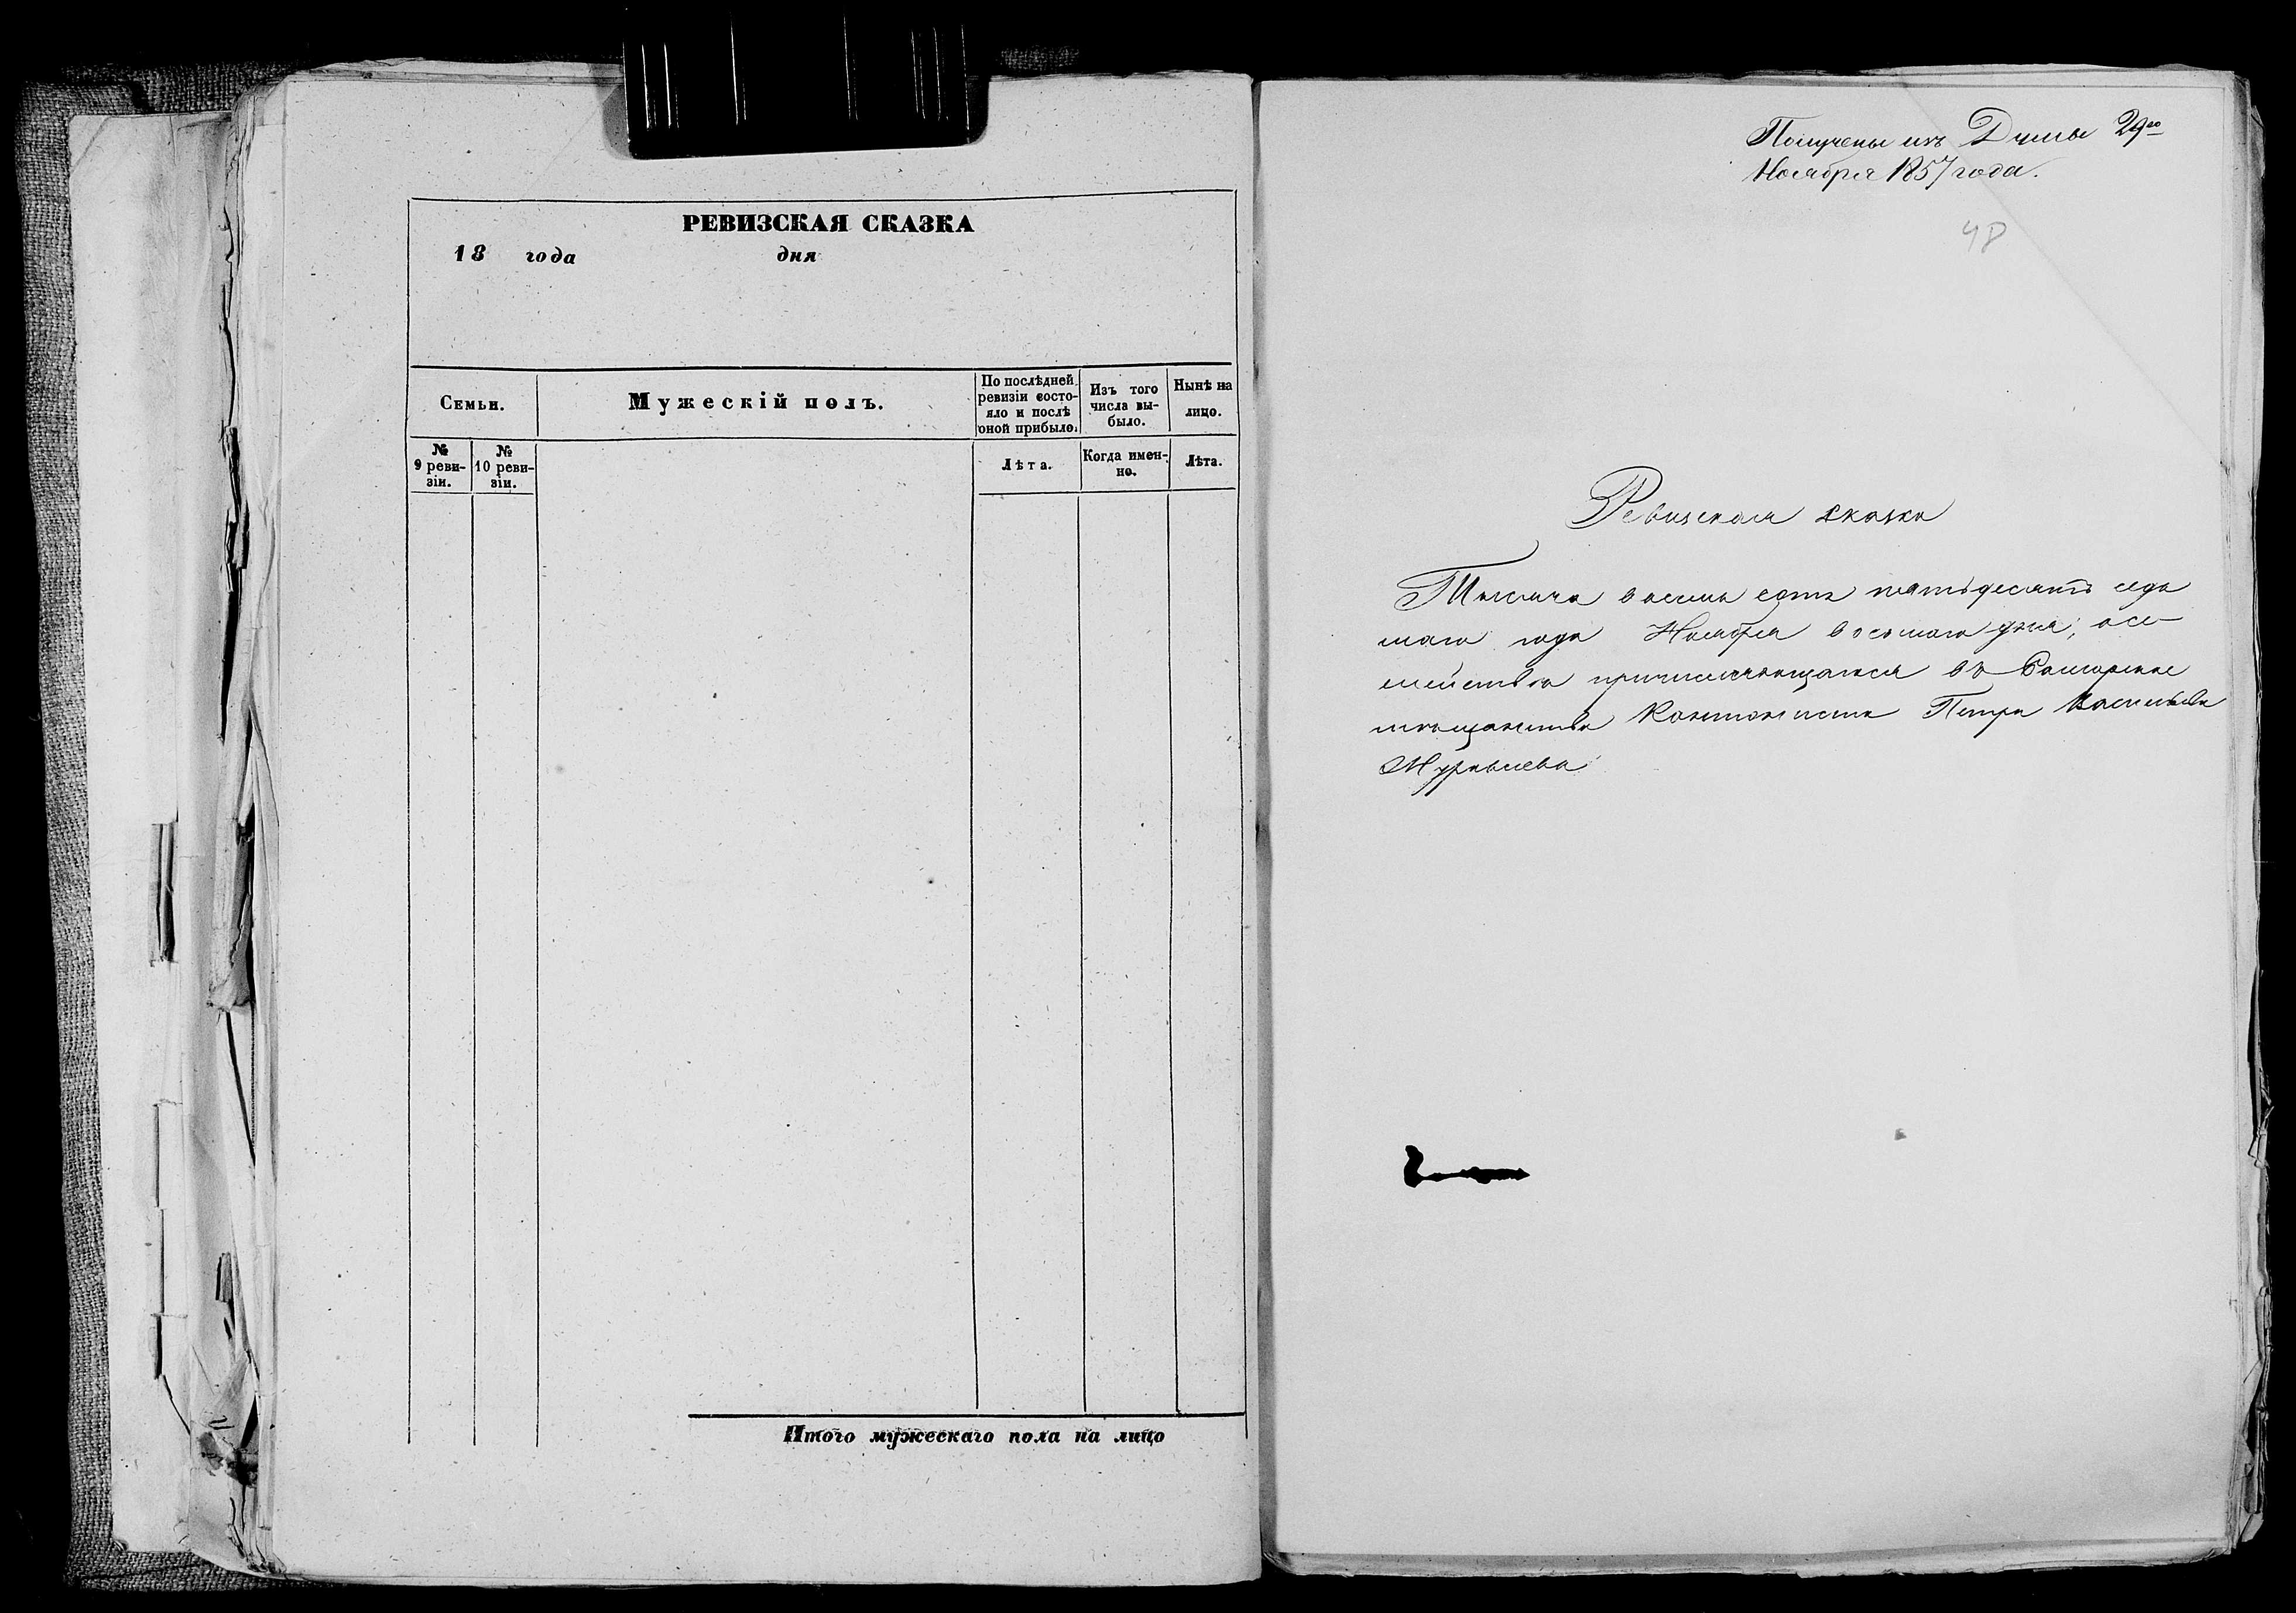 РЕВИЗСКАЯ СКАЗКА
18 года дня
Семьи.
Мужескій полъ.
По послѣдней
ревизіи состо-
яло и послѣ
оной прибыло.
Изъ того
числа вы-
было.
Нынѣ на
лицо.
№
9 реви-
зіи.
№
10 реви-
зіи.
Лѣта.
Когда имен-
но.
Лѣта.
Итого мужескаго пола на лицо
Получены изъ Думы 29го
Ноября 1857 года.
48
Ревизская сказка
Тысяча восемь сотъ пятьдесятъ седь
маго года Ноября восьмаго дня, о се-
мействѣ причисляющагося въ
мѣщанство Кантониста Петра Васильева
Муравьева